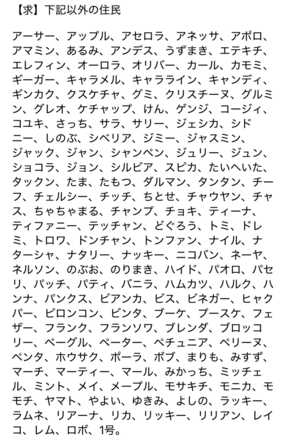 【求】下記以外の住民
アーサー、アップル、アセロラ、アネッサ、アポロ、
アマミン、あるみ、アンデス、うずまき、エテキチ、
エレフィン、オーロラ、オリバー、カール、カモミ、
ギーガー、キャラメル、キャラライン、キャンディ、
ギンカク、クスケチャ、グミ、クリスチーヌ、グルミ
ン、グレオ、ケチャップ、けん、ゲンジ、コージィ、
コユキ、さっち、サラ、サリー、ジェシカ、シド
ニー、しのぶ、シベリア、ジミー、ジャスミン、
ジャック、ジャン、シャンペン、ジュリー、ジュン、
ショコラ、ジョン、シルビア、スピカ、たいへいた、
タックン、たま、たもつ、ダルマン、タンタン、チー
フ、チェルシー、チッチ、ちとせ、チャウヤン、チャ
ス、ちゃちゃまる、チャンプ、チョキ、ティーナ、
ティファニー、テッチャン、どぐろう、トミ、ドレ
ミ、トロワ、ドンチャン、トンファン、ナイル、ナ
ターシャ、ナタリー、ナッキー、ニコバン、ネーヤ、
ネルソン、のぶお、のりまき、ハイド、パオロ、パセ
リ、パッチ、パティ、バニラ、ハムカツ、ハルク、ハ
ンナ、パンクス、ビアンカ、ビス、ビネガー、ヒャク
パー、ビロンコン、ビンタ、ブーケ、ブースケ、フェ
ザー、フランク、フランソワ、ブレンダ、ブロッコ
リー、ベーグル、ペーター、ペチュニア、ペリーヌ、
ペンタ、ホウサク、ポーラ、ボブ、まりも、みすず、
マーチ、マーティー、マール、みかっち、ミッチェ
ル、ミント、メイ、メープル、モサキチ、モニカ、モ
モチ、ヤマト、やよい、ゆきみ、よしの、ラッキー、
ラムネ、リアーナ、リカ、リッキー、リリアン、レイ
コ、レム、ロボ、1号。